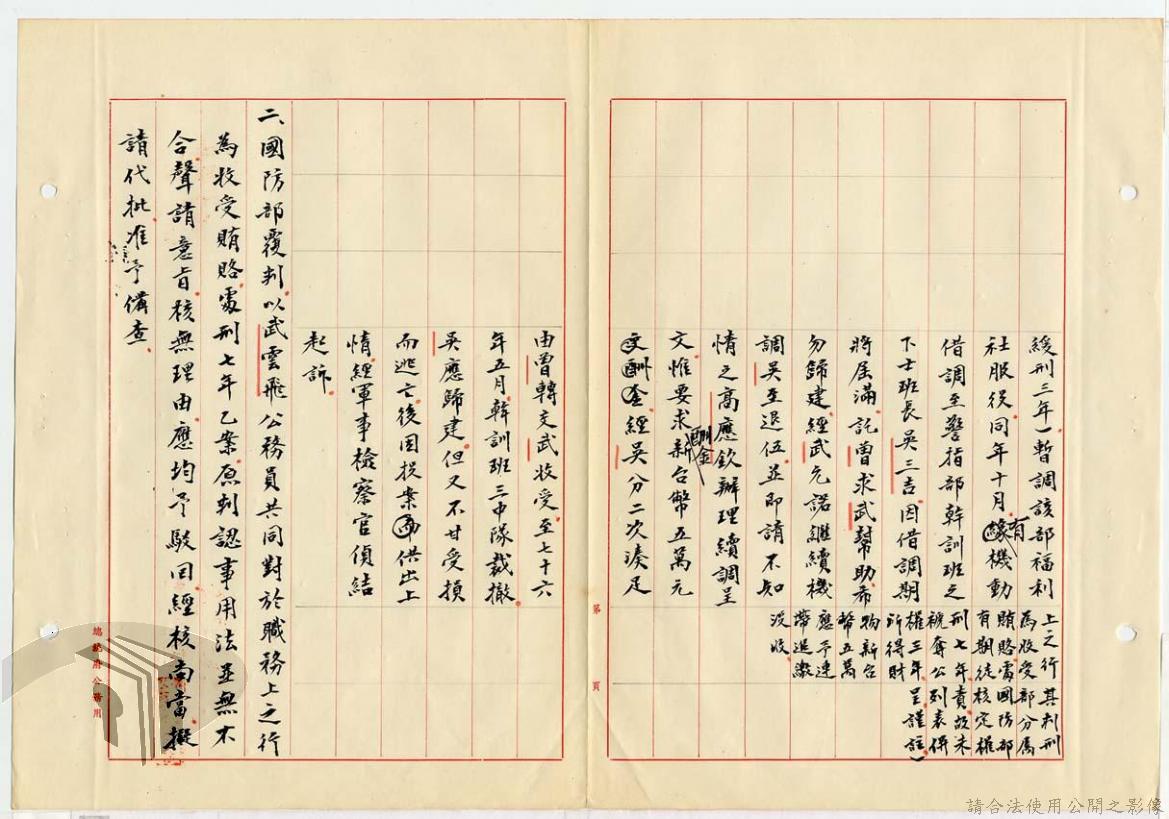 緩刑三年)暫調該部福利
社服役同年十月緣有機動
借調至警指部幹訓班之
下士班長吳三吉因借調期
將屆滿託曾求武幫助希
勿歸建經武允諾繼續機
調吳至退伍並即請不知
情之高應欽辦理續調呈
文惟要求酬金新台幣五萬元
文酬金經吳分二次湊足
上之行
為收受
賄賂處
有期徒
刑七年
褫奪公
權三年
所得財
物新台
幣五萬
應予連
帶追繳
沒收
其判刑
部分屬
國防部
核定權
責,故未
列表併
呈謹註)
第 頁
由曾轉交武收受至七十六
年五月幹訓班三中隊裁撤
吳應歸建但又不甘受損
而逃亡後因投案而供出上
情經軍事檢察官偵結
起訴
二、國防部覆判以武雲飛公務員共同對於職務上之行
為收受賄賂處刑七年乙案原判認事用法並無不
合聲請意旨核無理由應均予駁回經核尚當擬
請代批准予備查
總統府公務用
請合法使用公開之影像